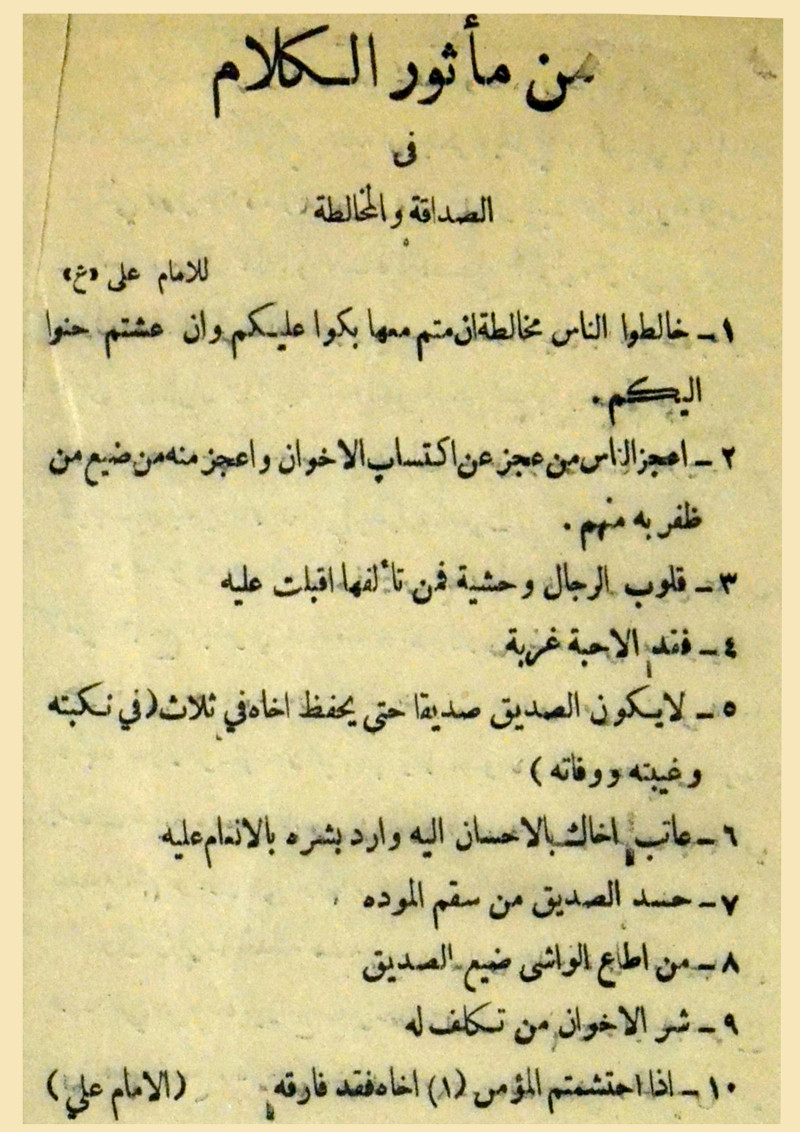 من مأثور الكلام
فى
الصداقة والمخالطة
للامام على «ع»
١ـ خالطوا الناس مخالطة ان متم معها بكوا عليكم وان عشتم حنوا
اليكم .
٢ ـ اعجز الناس من عجز عن اكتساب الاخوان واعجز منه من ضيع من
ظفر به منهم .
٣ ـ قلوب الرجال وحشية فمن تألفها اقبلت عليه
٤ ـ فقد الاحبة غربة
٥ ـ لايكون الصديق صديقا حتى يحفظ اخاه في ثلاث (في نكبته
وغيبته ووفاته )
٦ ـ عاتب اخاك بالاحسان اليه وارد بشره بالانعام عليه
٧ ـ حسد الصديق من سقم الموده
٨ ـ من اطاع الواشى ضيع الصديق
٩ ـ شر الاخوان من تكلف له
١٠ ـ اذا احتشمتم المؤمن (١) اخاه فقد فارقه (الامام علي )